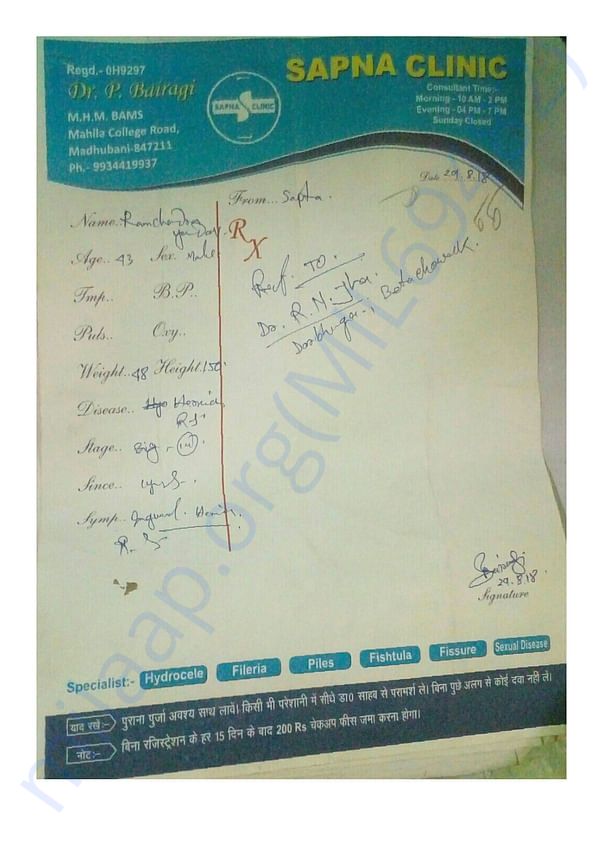 Regd.- 0H9297
Dr. P. Bairagi
M.H.M. BAMS
Mahila College Road,
Madhubani-847211
Ph.- 9934419937
SAPNA CLINIC
SAPNA CLINIC
Consultant Time:-
Morning - 10 AM - 2 PM
Evening - 04 PM - 7 PM
Sunday Closed
Date 29.8.18
From... Sapta.
Name. Ramchandra
Yadav.
Age.. 43 Sex. Male
Tmp.. B.P..
Puls.. Oxy..
Weight.. 48 Height. 150
Disease.. Hernia
Rs
Stage.. Big
Since..
Symp.. Hernia.
R. S
RX
Ref. To.
Dr. R. N. Jha.
Bairagi
29.8.18
Signature
Specialist:- Hydrocele Fileria Piles Fishtula Fissure Sexual Disease
याद रखे:- पुराना पुर्जा अवश्य साथ लावें। किसी भी परेशानी में सीधे डा0 साहब से परामर्श ले। बिना पुछे अलग से कोई दवा नही ले।
नोट:- बिना रजिस्ट्रेशन के हर 15 दिन के बाद 200 Rs चेकअप फीस जमा करना होगा।